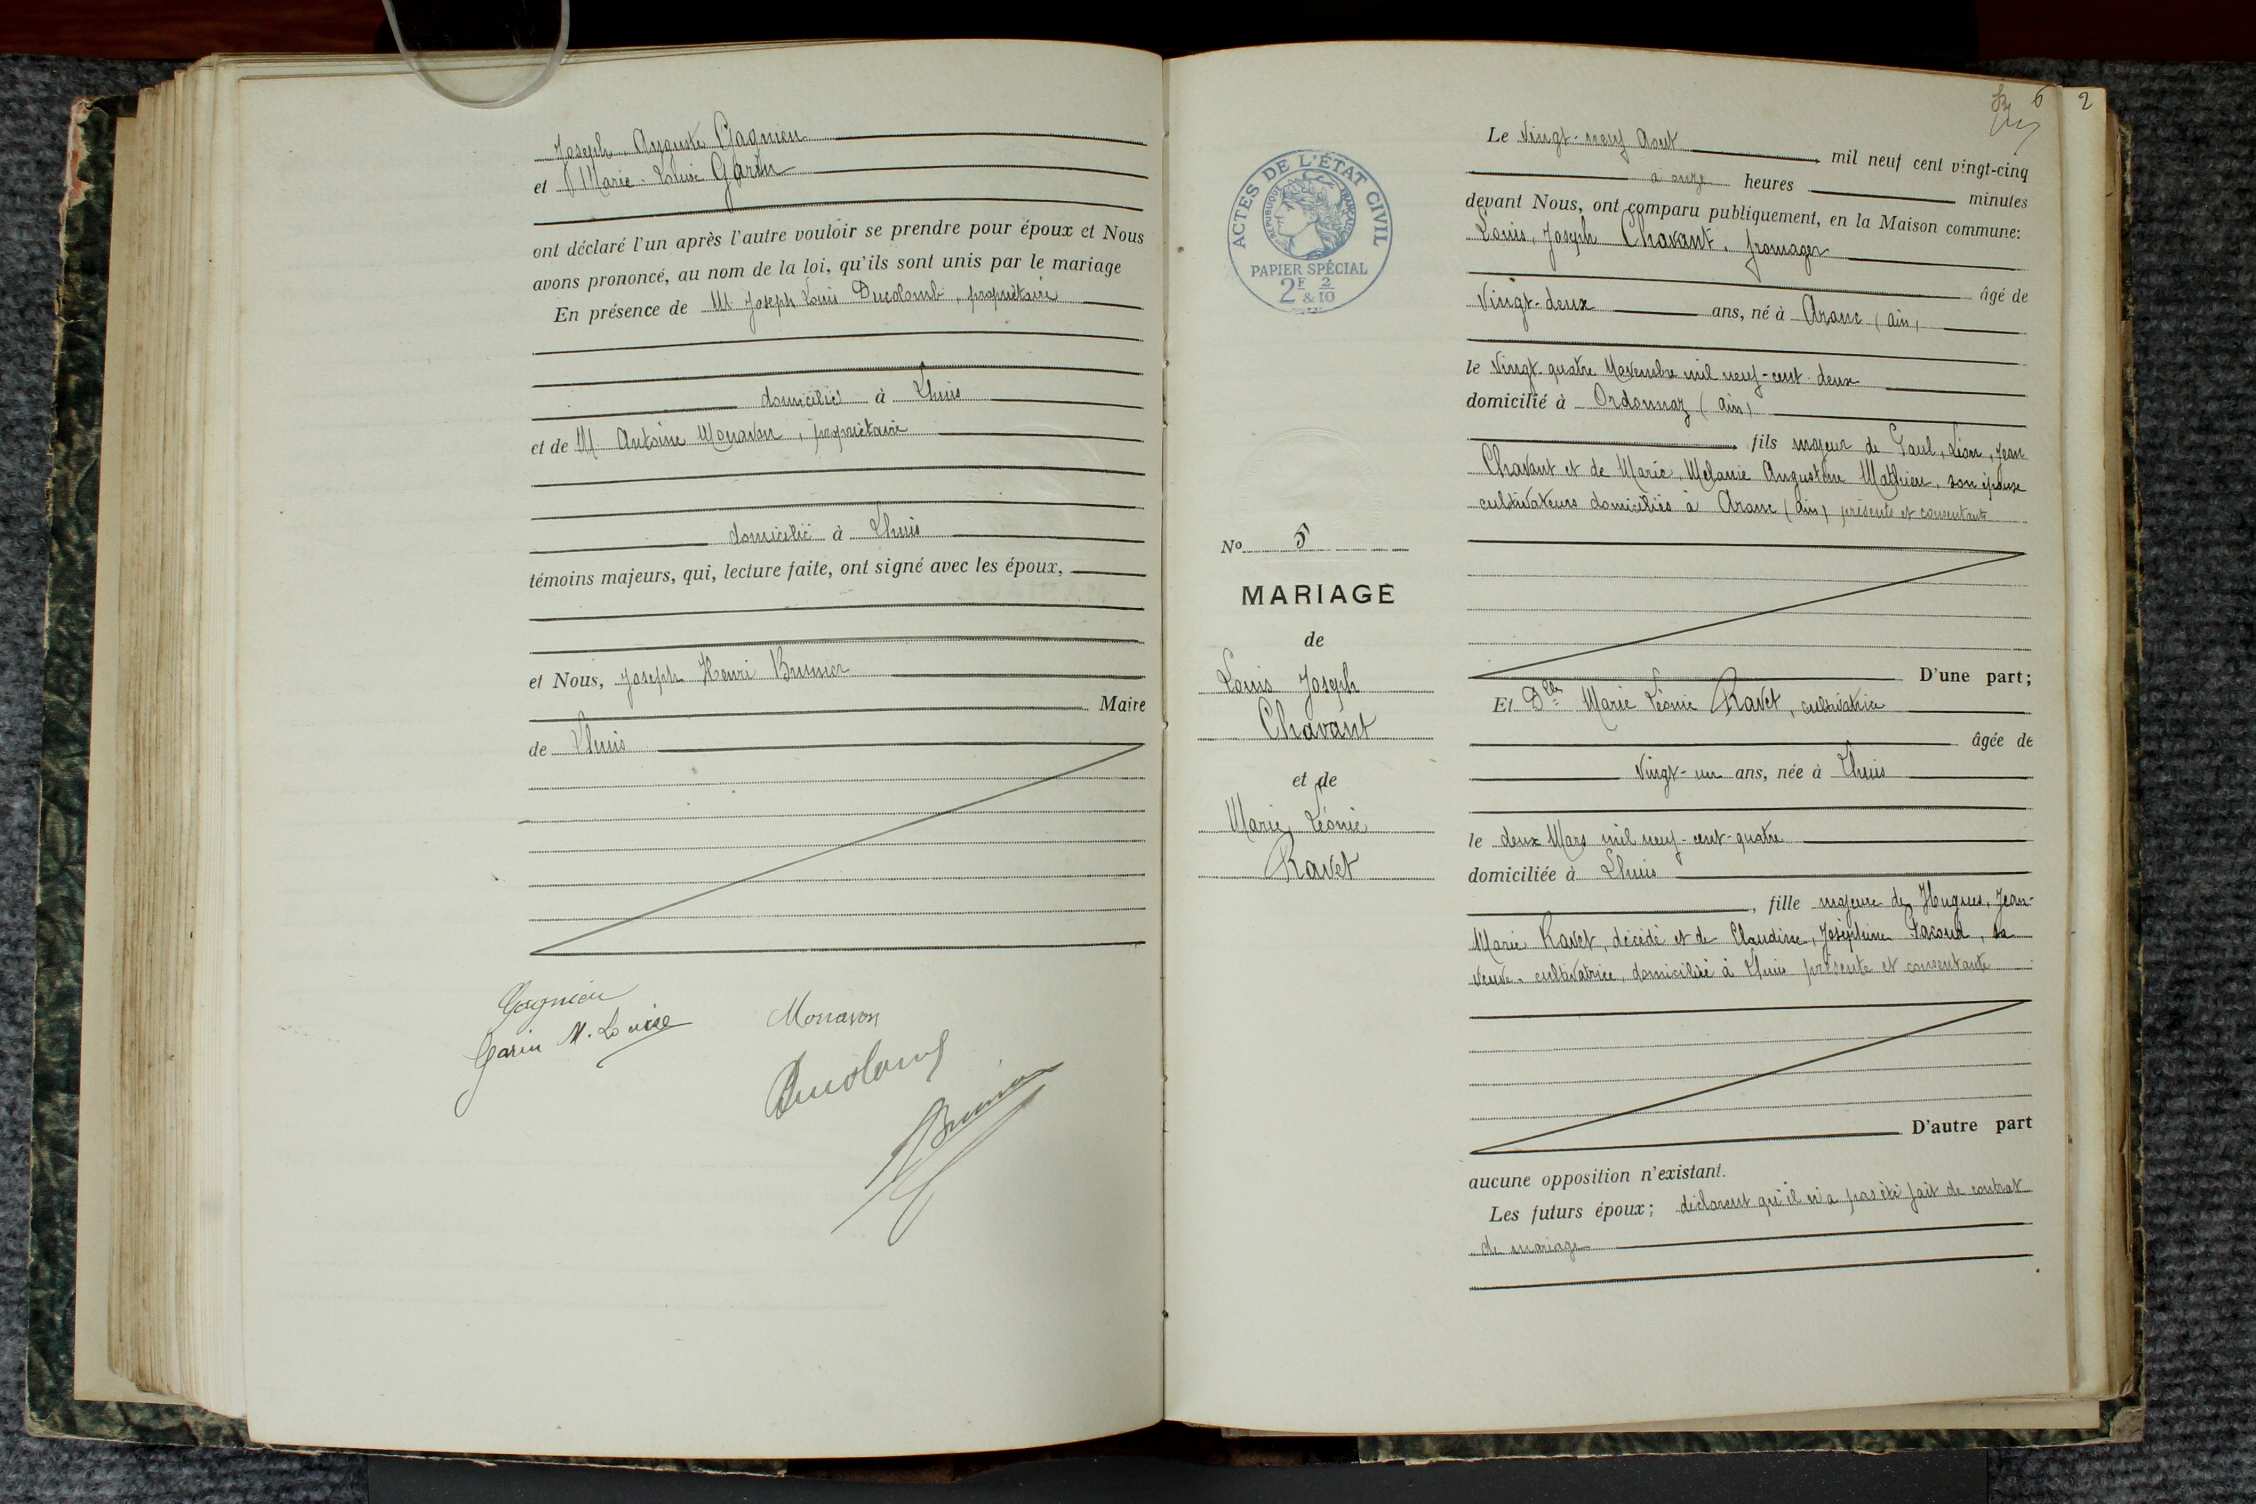 Joseph, Auguste Gagnieu
et Marie-Louise Garin
ont déclaré l'un après l'autre vouloir se prendre pour époux et Nous
avons prononcé, au nom de la loi, qu'ils sont unis par le mariage
En présence de M. Joseph Louis Ducolomb, propriétaire
domicilié à Lhuis
et de M. Antoine Monavon, propriétaire
domicilié à Lhuis
témoins majeurs, qui, lecture faite, ont signé avec les époux,
et Nous, Joseph Henri Brunier
Maire
de Lhuis
Gagnieu
Garin M. Louise
Monavon
Ducolomb
Brunier
6 2
ACTES DE L'ÉTAT CIVIL
RÉPUBLIQUE FRANÇAISE
PAPIER SPÉCIAL
2F & 2/10
No 5
MARIAGE
de
Louis Joseph
Chavant
et de
Marie, Léonie
Ravet
Le Vingt-neuf Aout mil neuf cent vingt-cinq
à onze heures minutes
devant Nous, ont comparu publiquement, en la Maison commune:
Louis, Joseph Chavant, fromager
âgé de
Vingt-deux ans, né à Aranc (Ain)
le Vingt-quatre Novembre mil neuf-cent-deux
domicilié à Ordonnaz (Ain)
fils majeur de Paul, Léon, Jean
Chavant et de Marie, Mélanie Augustine Mathieu, son épouse
cultivateurs domiciliés à Aranc (Ain) présents et consentants
D'une part;
Et Dlle Marie Léonie Ravet, cultivatrice
âgée de
Vingt-un ans, née à Lhuis
le deux Mars mil neuf-cent-quatre
domiciliée à Lhuis
, fille majeure de Hugues, Jean-
Marie Ravet, décédé et de Claudine, Joséphine Pacoud, sa
veuve, cultivatrice, domiciliée à Lhuis présente et consentante
D'autre part
aucune opposition n'existant.
Les futurs époux; déclarent qu'il n'a pas été fait de contrat
de mariage